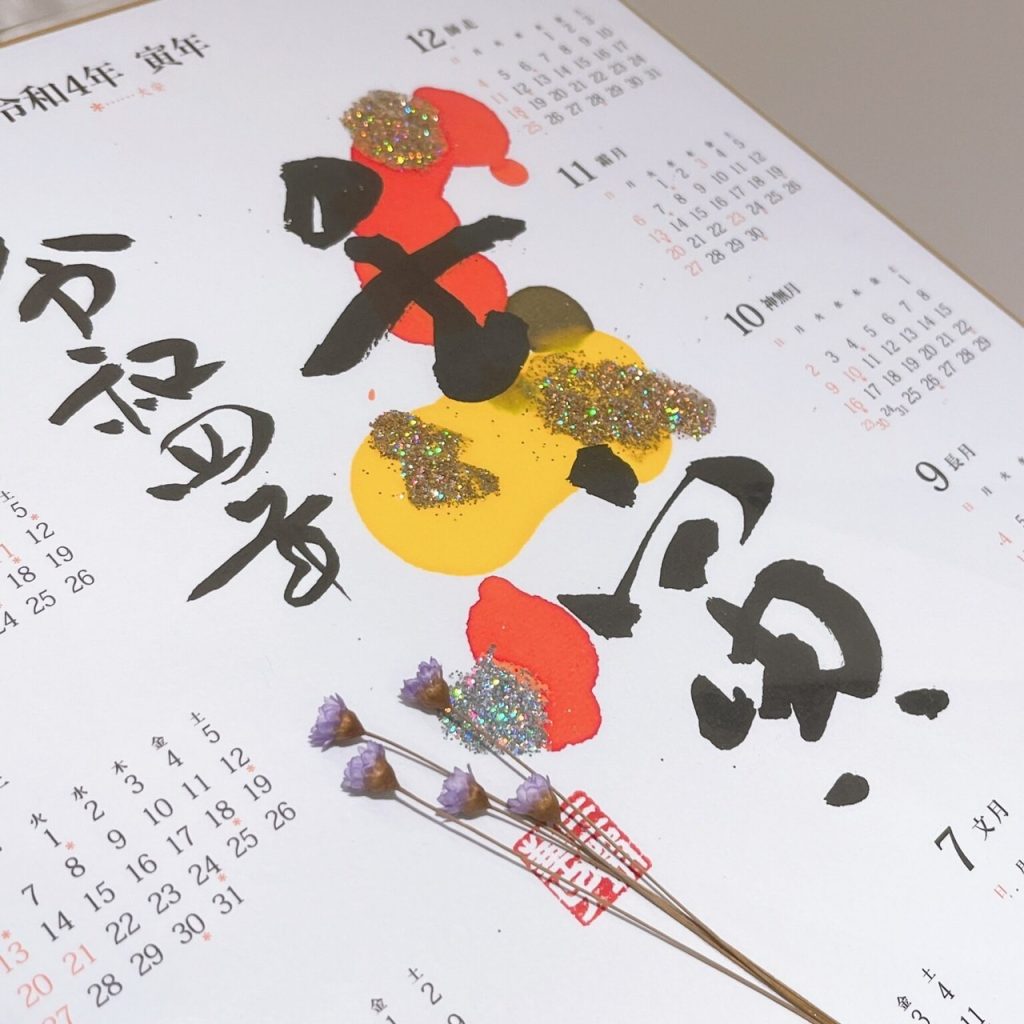 令和4年 寅年
*……大安
12 師走
1 2 3
4 5 6 7 8 9 10
11 12 13 14 15 16 17
18 19 20 21 22 23 24
25 26 27 28 29 30 31
11 霜月
日 月 火 水 木 金 土
1 2 3 4 5
6 7 8 9 10 11 12
13 14 15 16 17 18 19
20 21 22 23 24 25 26
27 28 29 30
10 神無月
日 月 火 水 木 金 土
1
2 3 4 5 6 7 8
9 10 11 12 13 14 15
16 17 18 19 20 21 22
23 24 25 26 27 28 29
30 31
9 長月
日 月 火 水
4 5
7 文月
日 月
叶
土
5
11 12
18 19
24 25 26
火 水 木 金 土
1 2 3 4 5
7 8 9 10 11 12
13 14 15 16 17 18 19
20 21 22 23 24 25 26
27 28 29 30 31
金 土
1 2
9
金 土
3 4
11